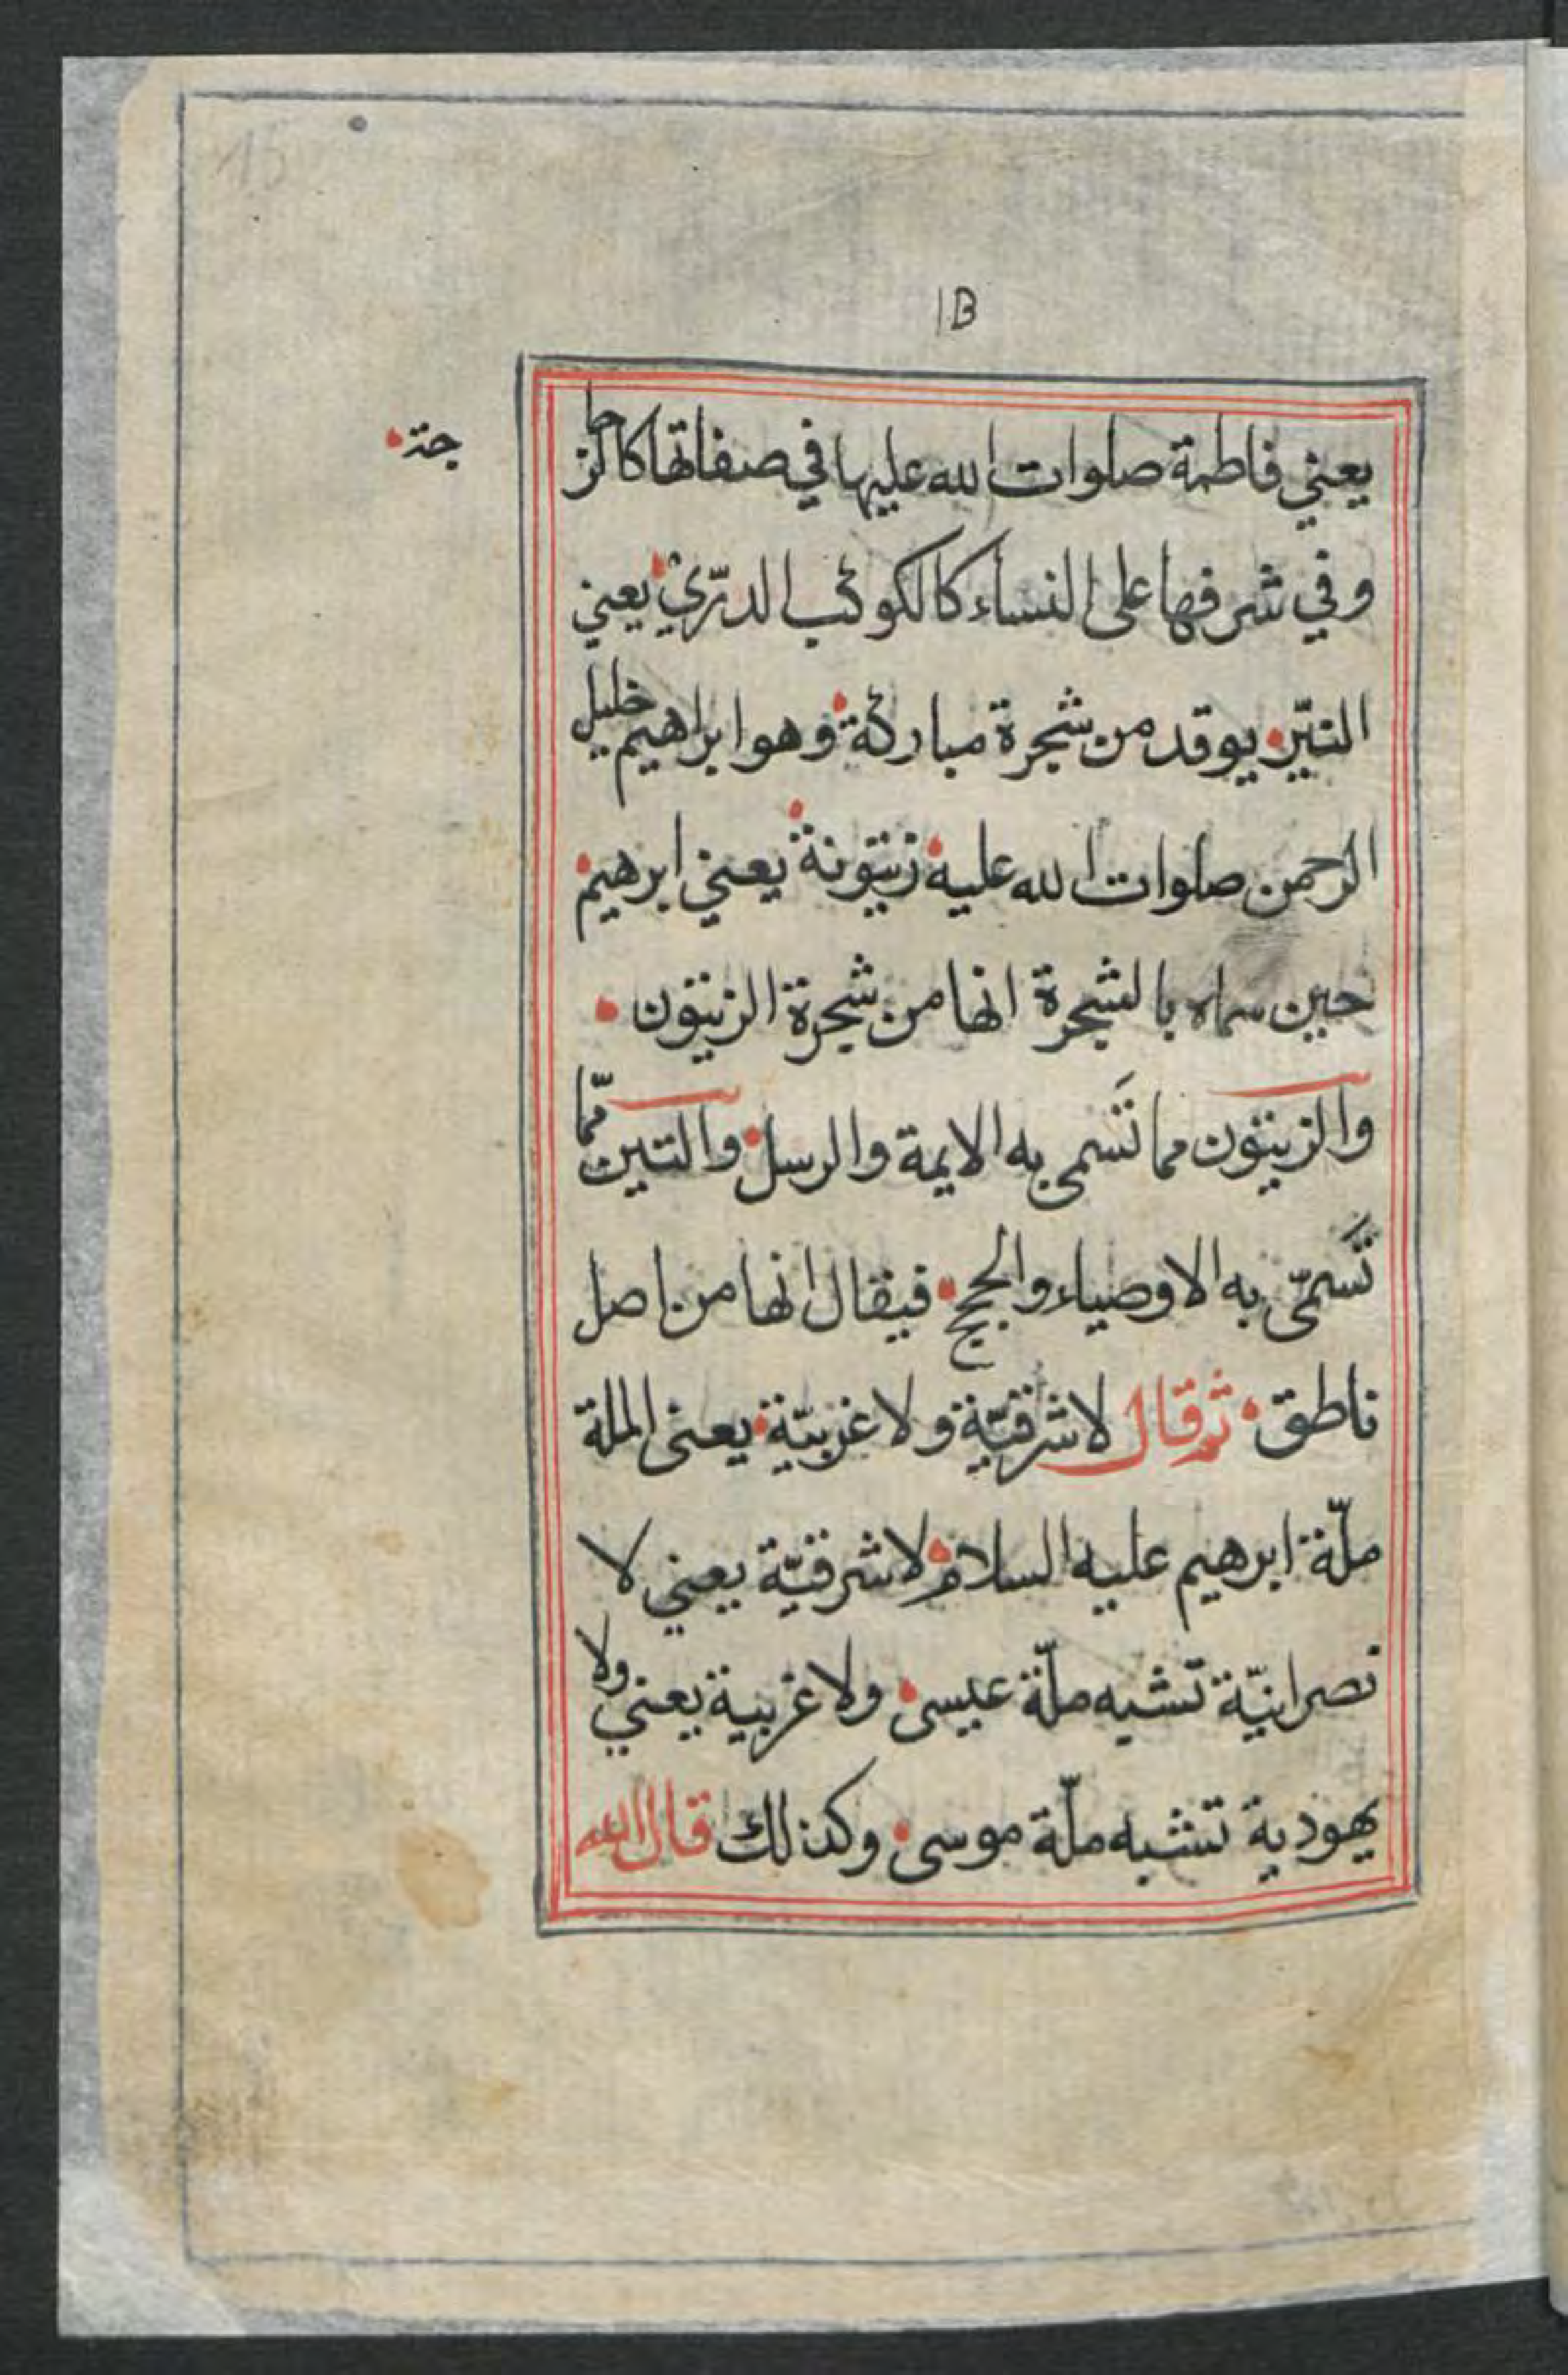 15
1B
يعني فاطمة صلوات الله عليها في صفاتها كالزجا
جة
وفي شرفها على النساء كالكوكب الدرّيّ يعني
النيّر يوقد من شجرة مباركة وهو ابراهيم خليل
الرحمن صلوات الله عليه زيتونة يعني ابرهيم
حين سماه بالشجرة انها من شجرة الزيتون
والزيتون مما تَسمى به الايمة والرسل والتين ممّا
تَسمّى به الاوصياء والحجج فيقال انها من اصل
ناطق ثم قال لا شرقيّة ولا غربيّة يعنى الملة
ملّة ابرهيم عليه السلام لا شرقيّة يعني لا
نصرانيّة تشبه ملّة عيسى ولا غربية يعني ولا
يهودية تشبه ملّة موسى وكذلك قال الله